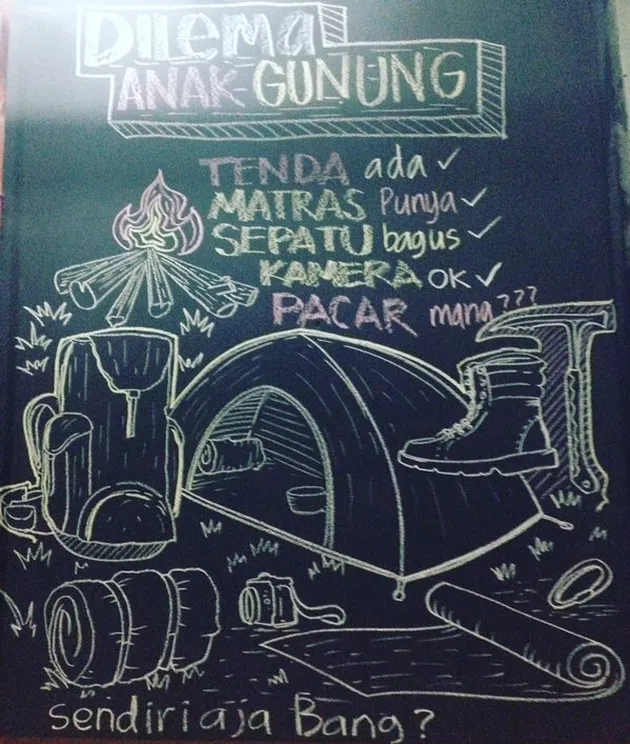 DILEMA
ANAK GUNUNG
TENDA ada ✓
MATRAS Punya ✓
SEPATU bagus ✓
KAMERA OK ✓
PACAR mana???
Sendiri aja Bang?